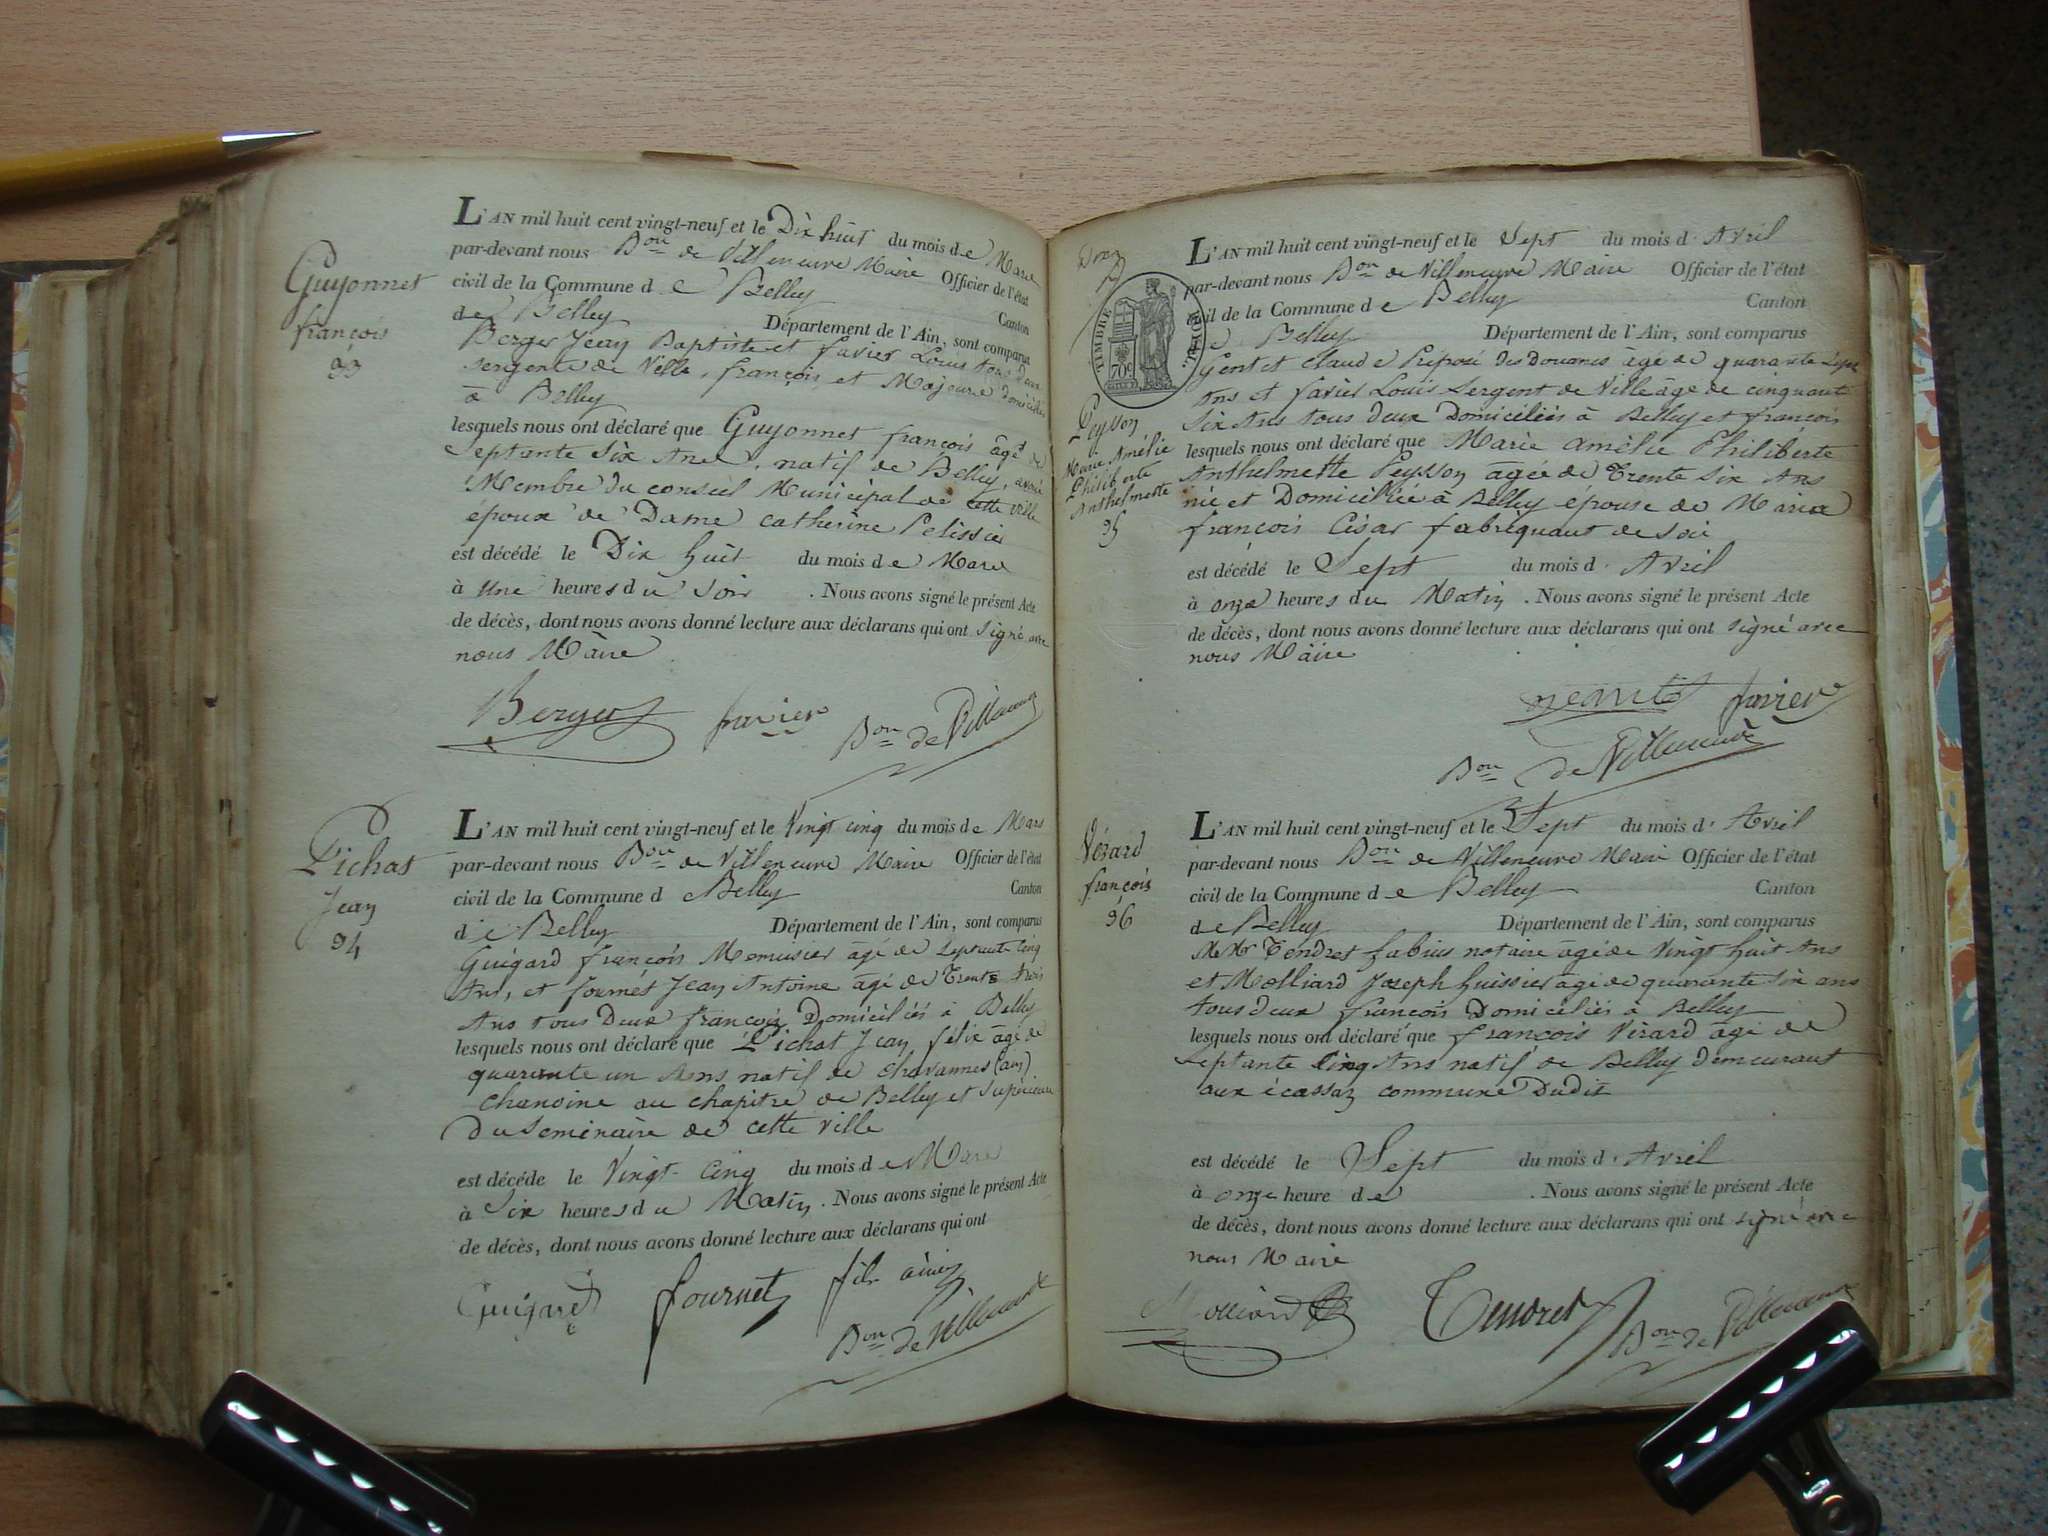 Guyonnet
françois
93
L'AN mil huit cent vingt-neuf et le Dix huit du mois de Mars
par-devant nous Bon de Villeneuve Maire Officier de l'état
civil de la Commune de Belley Canton
de Belley Département de l'Ain, sont comparus
Berger Jean Baptiste et favier Louis tous deux
sergents de Ville, françois et Majeurs domiciliés
à Belley
lesquels nous ont déclaré que Guyonnet françois âgé de
Septante Six Ans, natif de Belley,
Membre du conseil Municipal de cette ville
époux de Dame catherine Pelissier
est décédé le Dix huit du mois de Mars
à Une heures du Soir . Nous avons signé le présent Acte
de décès, dont nous avons donné lecture aux déclarans qui ont signé avec
nous Maire
Berger favier Bon de Villeneuve
Pichat
Jean
94
L'AN mil huit cent vingt-neuf et le Vingt cinq du mois de Mars
par-devant nous Bon de Villeneuve Maire Officier de l'état
civil de la Commune de Belley Canton
de Belley Département de l'Ain, sont comparus
Guigard françois Menuisier âgé de Septante cinq
Ans, et fournet Jean Antoine âgé de Trente trois
Ans tous Deux françois Domiciliés à Belley
lesquels nous ont déclaré que Pichat Jean félix âgé de
quarante un Ans natif de chavannes (ain)
chanoine au chapitre de Belley et Supérieur
Du Seminaire de cette ville
est décédé le Vingt cinq du mois de Mars
à Six heures du Matin . Nous avons signé le présent Acte
de décès, dont nous avons donné lecture aux déclarans qui ont
Guigard fournet fils ainé
Bon de Villeneuve
TIMBRE ROYAL
70c
Peysson
Marie Amélie
Philiberte
Anthelmette
95
L'AN mil huit cent vingt-neuf et le Sept du mois d'Avril
par-devant nous Bon de Villeneuve Maire Officier de l'état
civil de la Commune de Belley Canton
de Belley Département de l'Ain, sont comparus
Claude Préposé des Douanes âgé de quarante Sept
Ans et favier Louis Sergent de Ville âgé de cinquante
Six Ans tous deux Domiciliés à Belley et françois
lesquels nous ont déclaré que Marie Amélie Philiberte
Anthelmette Peysson âgée de Trente Six Ans
née et Domiciliée à Belley épouse de
françois César fabriquant de Soie
est décédé le Sept du mois d'Avril
à onze heures du Matin . Nous avons signé le présent Acte
de décès, dont nous avons donné lecture aux déclarans qui ont signé avec
nous Maire
favier
Bon de Villeneuve
Vérard
françois
96
L'AN mil huit cent vingt-neuf et le Sept du mois d'Avril
par-devant nous Bon de Villeneuve Maire Officier de l'état
civil de la Commune de Belley Canton
de Belley Département de l'Ain, sont comparus
MMrs Tendret fabius notaire âgé de Vingt huit Ans
et Molliard Joseph huissier âgé de quarante Six ans
tous deux françois Domiciliés à Belley
lesquels nous ont déclaré que françois Vérard âgé de
Septante Cinq Ans natif de Belley Demeurant
aux écassaz commune Dudit
est décédé le Sept du mois d'Avril
à onze heure de . Nous avons signé le présent Acte
de décès, dont nous avons donné lecture aux déclarans qui ont signé avec
nous Maire
Molliard Tendret Bon de Villeneuve